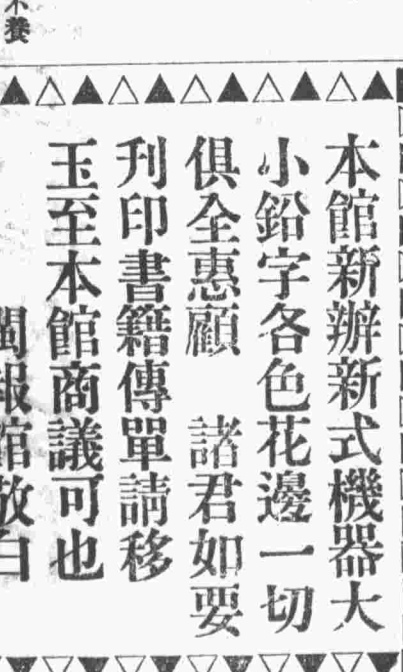 本館新辦新式機器大
小鉛字各色花邊一切
俱全惠顧　諸君如要
刋印書籍傳單請移
玉至本館商議可也
閩報館敬白
養